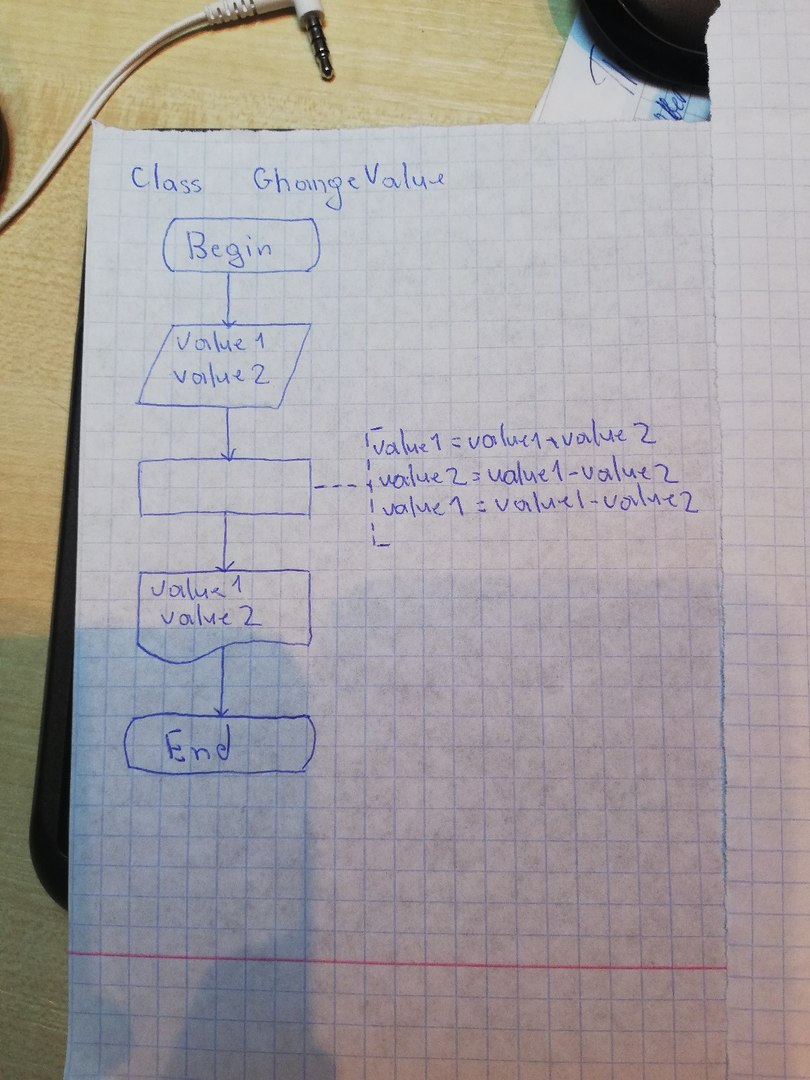 Class GhangeValue
Begin
value 1
value 2
value 1 = value 1 + value 2
value 2 = value 1 - value 2
value 1 = value 1 - value 2
value 1
value 2
End